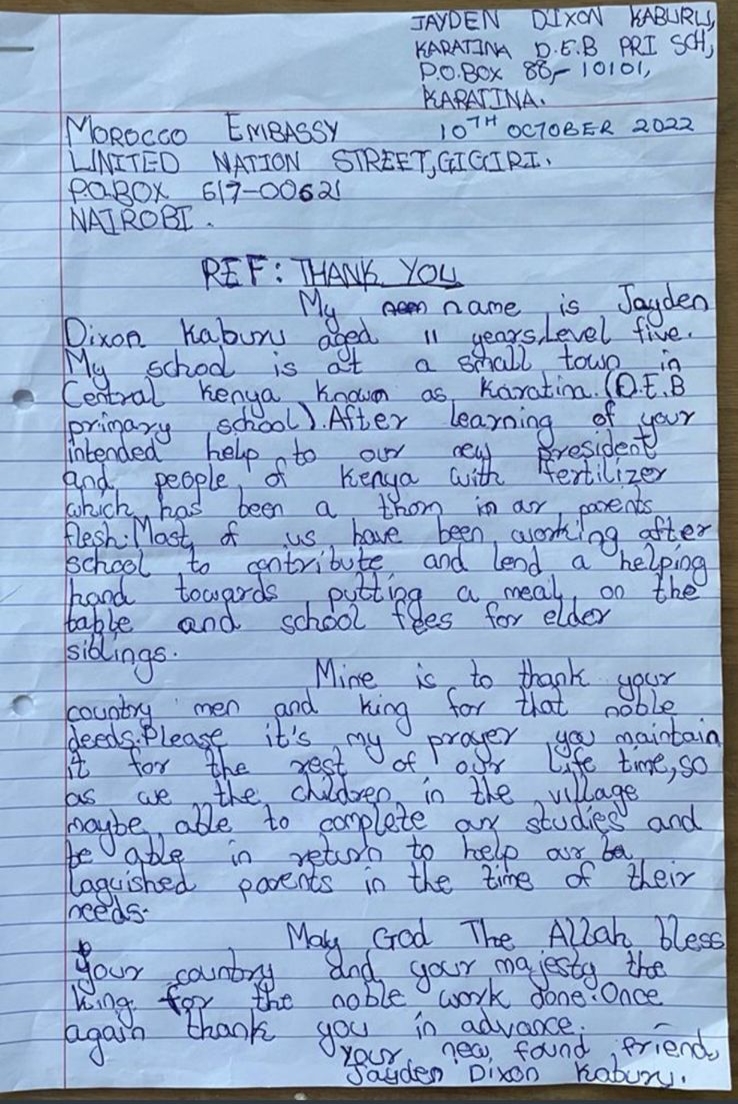 JAYDEN DIXON KABURU,
KARATINA D.E.B PRI SCH,
P.O.BOX 88,-10101,
KARATINA.
10TH OCTOBER 2022
MOROCCO EMBASSY
UNITED NATION STREET,GIGIRI.
P.O.BOX 617-00621
NAIROBI.
REF: THANK YOU
My name is Jayden
Dixon Kaburu aged 11 years,Level five.
My school is at a small town in
Central Kenya known as Karatina.(D.E.B
primary school).After learning of your
intended help to our new president
and people of Kenya with fertilizer
which has been a thorn in our parents
flesh.Most of us have been working after
school to contribute and lend a helping
hand towards putting a meal on the
table and school fees for elder
siblings.
Mine is to thank your
country men and king for that noble
deeds.Please it's my prayer you maintain
it for the rest of our life time,so
as we the children in the village
maybe able to complete our studies and
be able in return to help our
laguished parents in the time of their
needs.
May God The Allah bless
your country and your majesty the
king for the noble work done.Once
again thank you in advance.
Your new found friend,
Jayden Dixon Kaburu.